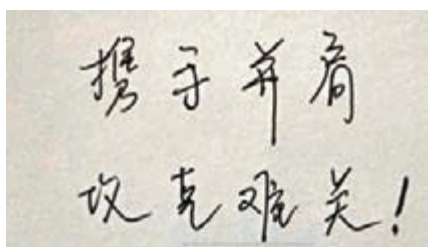 携手并肩
攻克难关!